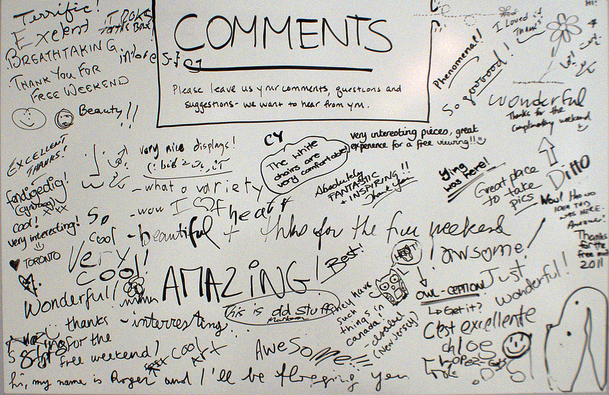 COMMENTS
Please leave us your comments, questions and
suggestions- we want to hear from you.
Terrific!
BREATHTAKING
THANK YOU FOR
FREE WEEKEND
Beauty!!
EXCELLENT
THANKS!
very nice displays!
CY
The white
chairs are
very comfortable!
very interesting pieces, great
experience for a free viewing!!
Phenomenal!
I Loved it
Thanks!
So goooood!
wonderful
Thanks for the
complimentary weekend
Ying
was here!
Great place
to take
pics
Ditto
Absolutely
FANTASTIC
+ INSPIRING!!
Thank you
fandigedig!
cool! xxx
very interesting!
TORONTO
- what a variety
- wow I heart
So
cool
- beautiful + thnks for the free weekend
Very
cool!
AMAZING!
Best!
awsome!
Wow!
Thanks
for the
free
2011
Wonderful!!
This is old stuff
They have
such
things in
Canada
(New Jersey)
HEY!
OWL-CEPTION
Get it?
Just
wonderful!
thanks
for the
free weekend!
- interresting
Cool Art
AWESOME!!!
C'est excellente
chloe
hi, my name is Roger and I'll be flogging you